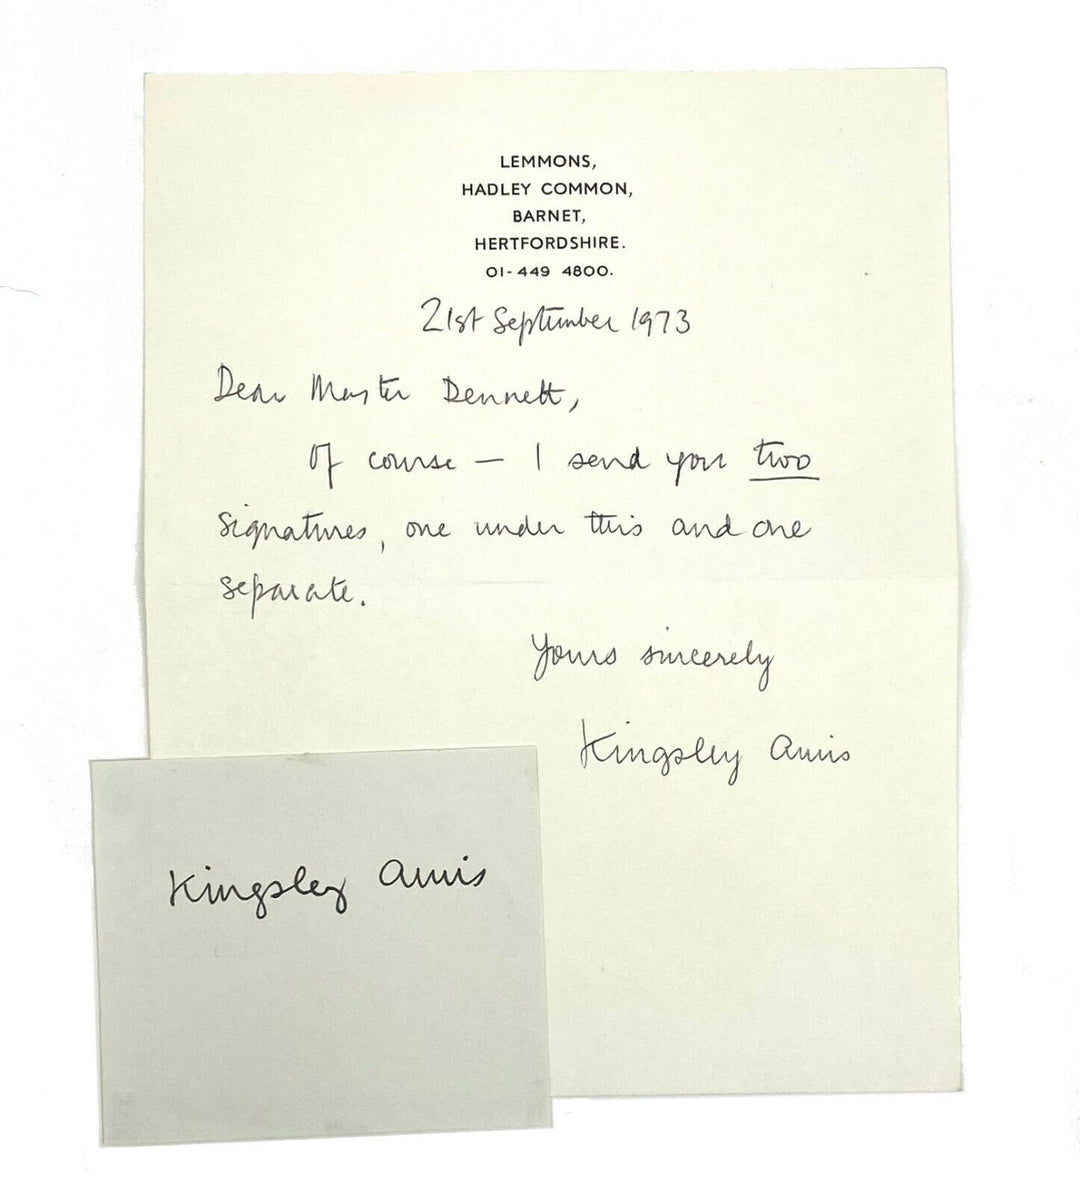 LEMMONS,
HADLEY COMMON,
BARNET,
HERTFORDSHIRE.
01-449 4800.
21st September 1973
Dear Master Dennett,
Of course – I send you two
signatures, one under this and one
separate.
Yours sincerely
Kingsley Amis
Kingsley Amis